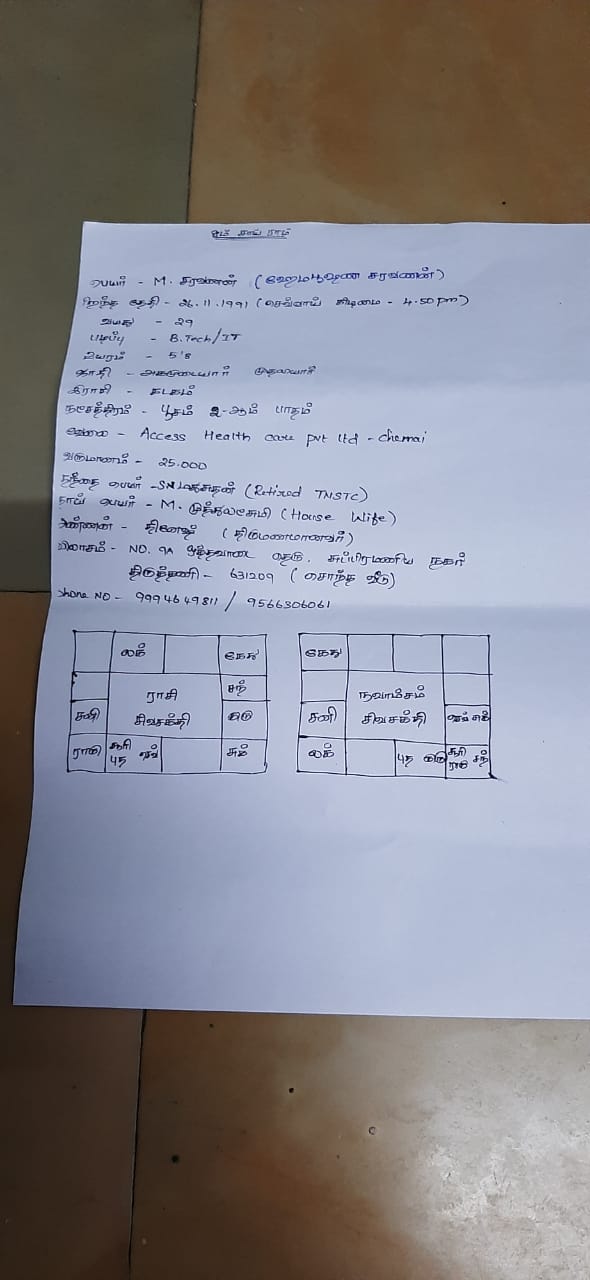 ஓம் சாய் ராம்
பெயர் - M. சரவணன் (ஹேமபூஷண சரவணன்)
பிறந்த தேதி - 26.11.1991 (செவ்வாய் கிழமை - 4.50 pm)
வயது - 29
படிப்பு - B.Tech/IT
உயரம் - 5'8
சாதி - அகமுடையார் முதலியார்
இராசி - கடகம்
நட்சத்திரம் - பூசம் 2-ஆம் பாதம்
வேலை - Access Health care pvt ltd - chennai
வருமானம் - 25.000
தந்தை பெயர் - SN (Retired TNSTC)
தாய் பெயர் - M. முத்துலட்சுமி (House Wife)
அண்ணன் - தினேஷ் (திருமணமானவர்)
விலாசம் - NO. 9A தெரு. சுப்பிரமணிய நகர்
திருத்தணி - 631209 (சொந்த வீடு)
phone NO - 9994649811 / 9566306061
லக் கேது
சந்
ராசி
சிவசக்தி
சனி குரு
ராகு சூரி புத செவ் சுக்
கேது
நவாம்சம்
சிவசக்தி
சனி செவ் சுக்
லக் புத குரு சூரி சந் ராகு